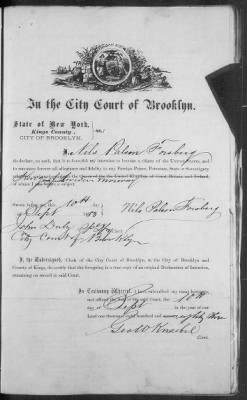 In the City Court of Brooklyn.
State of New York,
Kings County, ss.:
CITY OF BROOKLYN.
I Nils Palem Forsberg
do declare, on oath, that it is bona fide my intention to become a citizen of the United States, and
to renounce forever all allegiance and fidelity to any Foreign Prince, Potentate, State or Sovereignty
of whom I am a subject.
Sworn before me, this 10th day
of Sept 1883 Nils Palem Forsberg
John Duty
City Court of Brooklyn
I, the Undersigned, Clerk of the City Court of Brooklyn, in the City of Brooklyn and
County of Kings, do certify that the foregoing is a true copy of an original Declaration of Intention,
remaining on record in said Court.
In Testimony Whereof, I have subscribed my name hereunto
and affixed the Seal of the said Court, the 10th
day of Sept in the year of our
Lord one thousand eight hundred and eighty three
Geo W Knaebel
Clerk.